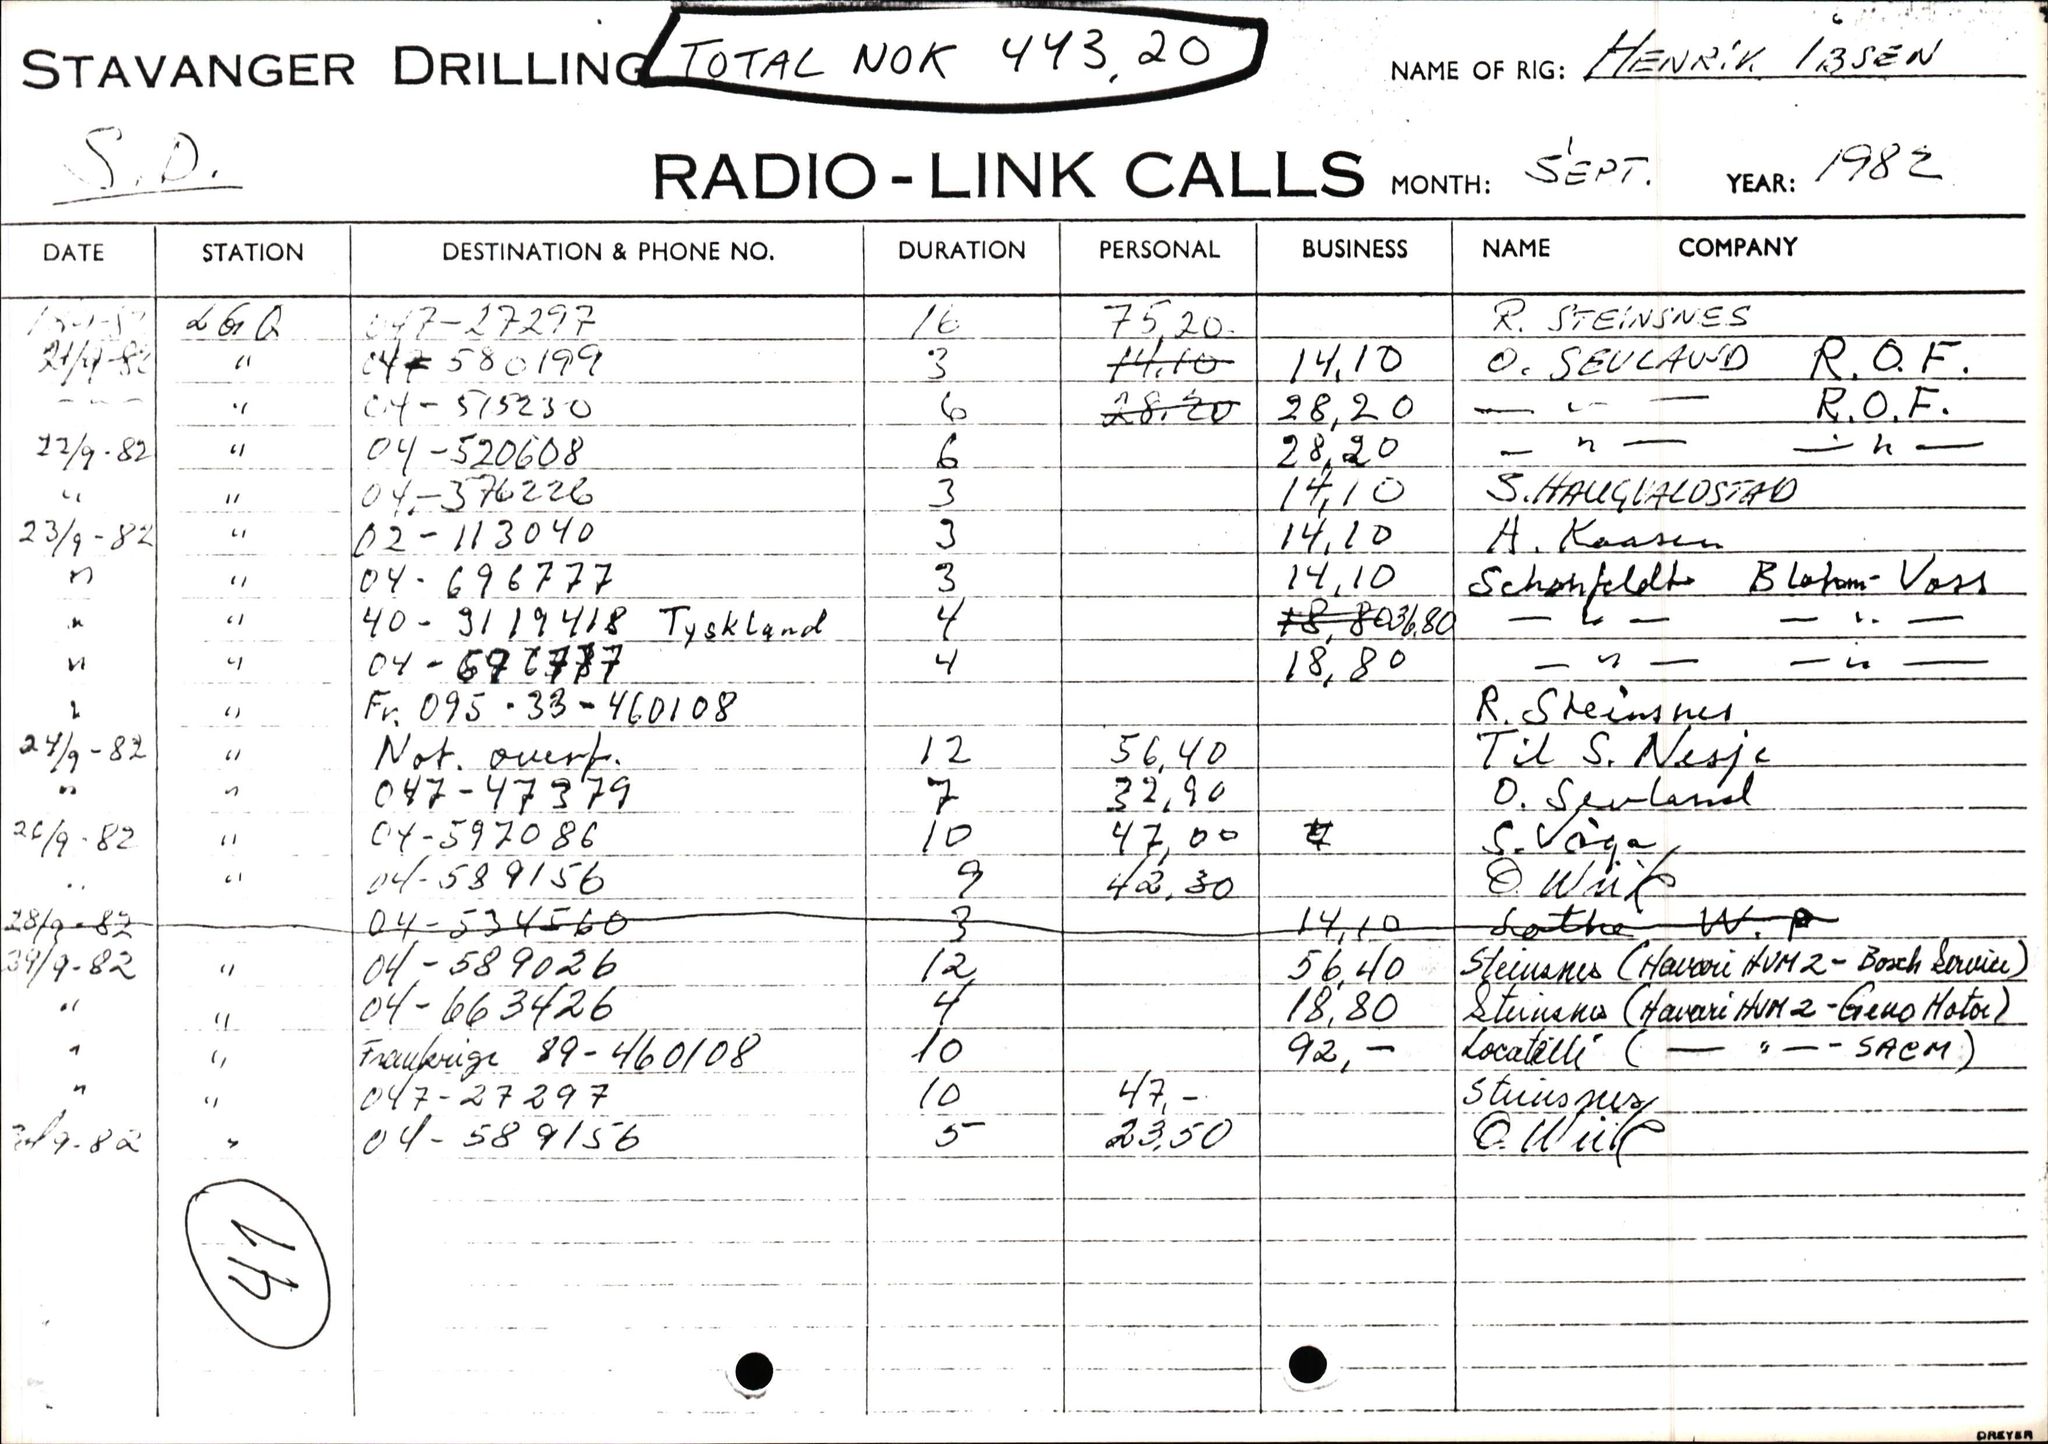 STAVANGER DRILLING
TOTAL NOK 443,20
NAME OF RIG: HENRIK IBSEN
S.D.
RADIO-LINK CALLS
MONTH: SEPT. YEAR: 1982
DATE STATION DESTINATION & PHONE NO. DURATION PERSONAL BUSINESS NAME COMPANY
LGQ 047-27297 16 75,20 R. STEINSNES
21/9-82 " 04-580199 3 14,10 14,10 O. SEVLAND R.O.F.
- " - " 04-515230 6 28,20 28,20 — " — R.O.F.
22/9-82 " 04-520608 6 28,20 — " — — " —
" " 04-376226 3 14,10 S. HAUGVALDSTAD
23/9-82 " 02-113040 3 14,10 A. Kaasen
" " 04-696777 3 14,10 Schönfeldt Blohm-Voss
" " 40-3119418 Tyskland 4 18,80 36,80 — " — — " —
" " 04-696777 4 18,80 — " — — " —
" " Fr. 095.33-460108 R. Steinsnes
24/9-82 " Not. overf. 12 56,40 Til S. Nesje
" " 047-47379 7 32,90 O. Sevland
26/9-82 " 04-597086 10 47,00 S. Våga
" " 04-589156 9 42,30 O. Wiik
28/9-82 04-534560 3 14,10 Lothe W.P
" 04-589026 12 56,40 Steinsnes (Havari HVM 2 - Bosch Service)
" " 04-663426 4 18,80 Steinsnes (Havari HVM 2 - Geno Motor)
" " Frankrige 89-460108 10 92,- Locatelli ( — " — - SACM)
" " 047-27297 10 47,- Steinsnes
" 04-589156 5 23,50 O. Wiik
DREYER